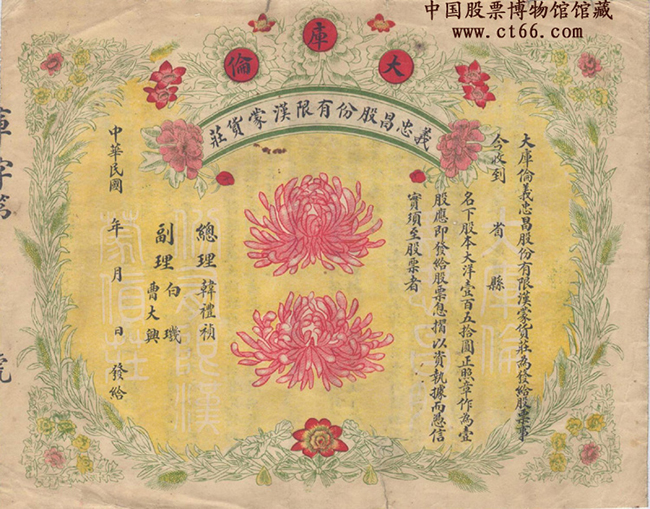 中国股票博物馆馆藏
www.ct66.com
大庫倫
義忠昌股份有限漢蒙貨莊
大庫倫義忠昌股份有限漢蒙貨莊為發給股票事
今收到 省 縣
名下股本大洋壹百五拾圓正照章作為壹
股應即發給股票息摺以資執據而憑信
實須至股票者
總理 韓禮禎
副理 白璣
曹大興
中華民國 年 月 日 發給
字第
號